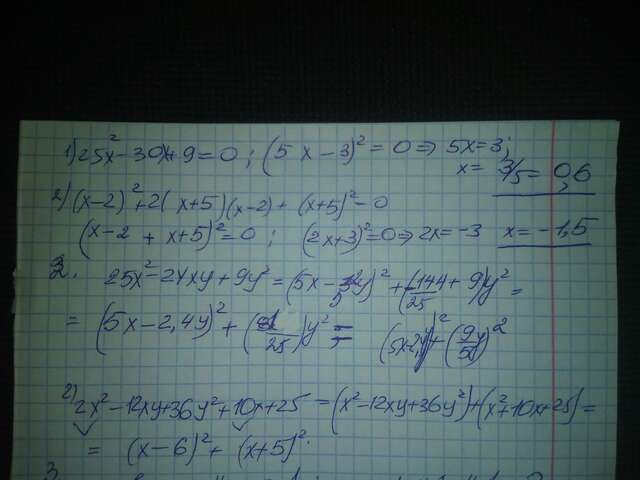 1) 25x² - 30x + 9 = 0 ; (5x - 3)² = 0 ⇒ 5x = 3 ;
x = 3/5 = 0,6
2) (x-2)² + 2(x+5)(x-2) + (x+5)² = 0
(x-2 + x+5)² = 0 ; (2x+3)² = 0 ⇒ 2x = -3 x = -1,5
2. 25x² - 24xy + 9y² = (5x - 12/5 y)² + (-144/25 + 9)y² =
= (5x - 2,4y)² + (81/25)y² = (5x-2,4y)² + (9y/5)²
2) 2x² - 12xy + 36y² + 10x + 25 = (x² - 12xy + 36y²) + (x² + 10x + 25) =
= (x - 6)² + (x + 5)².
3.